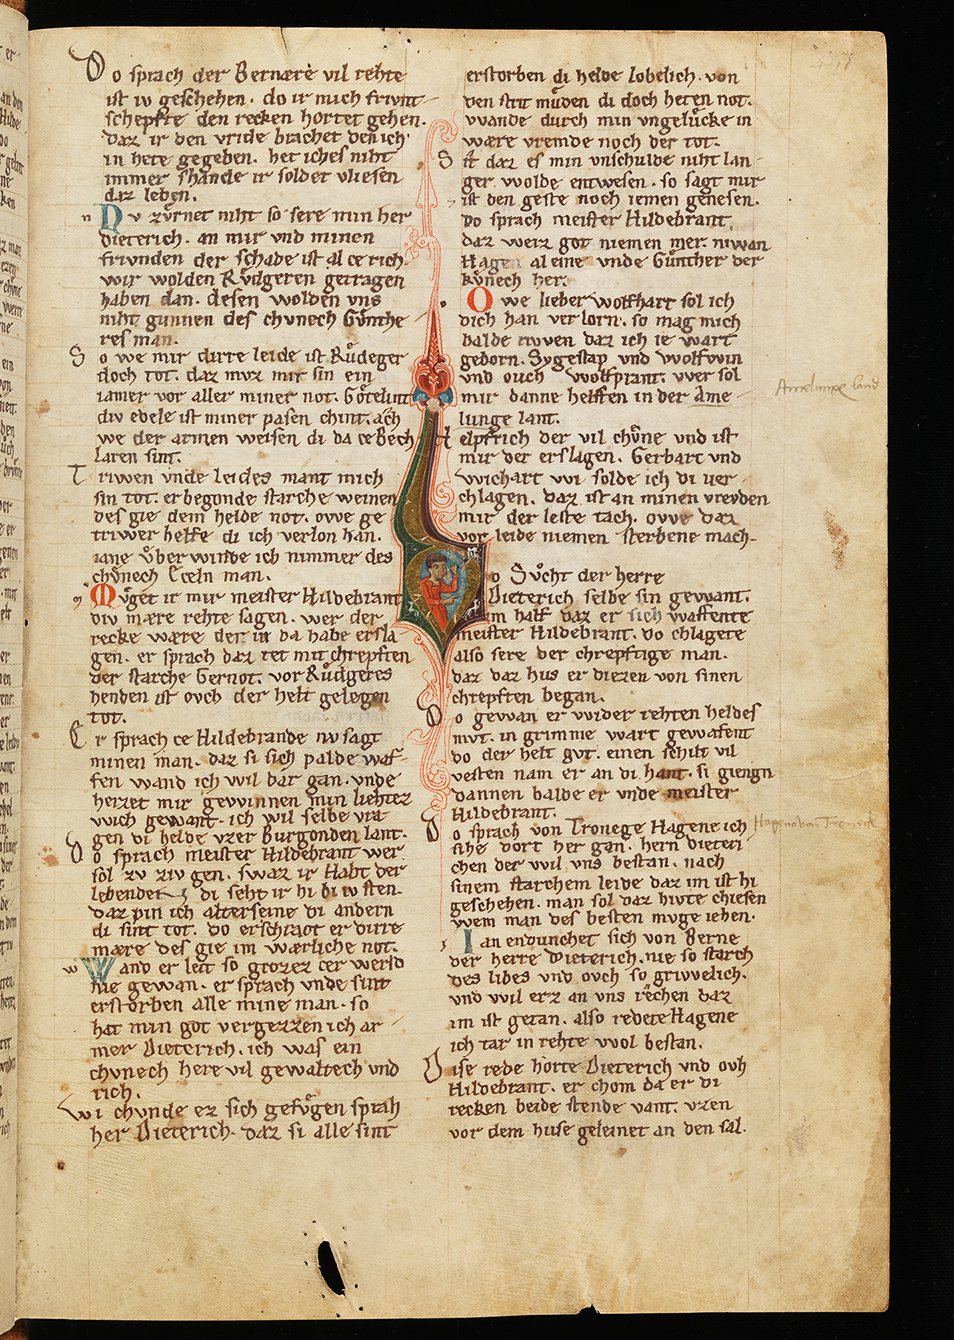 Do sprach der Bernære vil rehte
ist iv geschehen. do ir mich frivnt
schepfte den recken hortet gehen.
daz ir den vride brachet den ich
in hete gegeben. het iches niht
immer shande ir soldet vliesen
daz leben.
n Nv zvrnet niht so sere min her
Dieterich. an mir vnd minen
frivnden der schade ist al ce rich.
wir wolden Růdgeren getragen
haben dan. desen wolden vns
niht gunnen des chvnech Gůnthe
res man.
So we mir dirre leide ist Růdeger
doch tot. daz mvz mir sin ein
iamer vor aller miner not. Gőtelint
div edele ist miner pasen chint. ach
we der armen weisen di da ce Bech
laren sint.
Triwen vnde leides mant mich
sin tot. er begonde starche weinen
des gie dem helde not. owe ge
triwer helfe di ich verlon han.
iane vͤber winde ich nimmer des
chvnech Eceln man.
Mvget ir mir meister Hildebrant
div mære rehte sagen. wer der
recke wære der in da habe ersla
gen. er sprach daz tet mit chrepften
der starche Gernot. vor Růdgeres
henden ist ovch der helt gelegen
tot.
Er sprach ce Hildebrande nv sagt
minen man. daz si sich palde waf
fen wand ich wil dar gan. vnde
heizet mir gewinnen min liehtez
wich gewant. ich wil selbe vra
gen di helde vzer Burgonden lant.
Do sprach meister Hildebrant wer
sol zv ziv gen. swaz ir habt der
lebender di seht ir hi bi iv sten.
daz pin ich alterseine di andern
di sint tot. do erschract er dirre
mære des gie im wærliche not.
w Wand er leit so grozez cer werld
nie gewan. er sprach vnde sint
erstorben alle mine man. so
hat min got vergezzen ich ar
mer Dieterich. ich was ein
chvnech here vil gewaltech vnd
rich.
Wi chvnde ez sich gefůgen sprah
her Dieterich. daz si alle sint
erstorben di helde lobelich. von
den strit můden di doch heten not.
wande durch min vngelůcke in
wære vremde noch der tot.
Sit daz es min vnschulde niht lan
ger wolde entwesen. so sagt mir
ist den geste noch iemen genesen.
Do sprach meister Hildebrant
daz weiz got niemen mer. niwan
Hagen al eine vnde Gůnther der
kvnech her.
Owe lieber wolfhart sol ich
dich han verlorn. so mag mich
balde riwen daz ich ie wart
geborn. Sygestap vnd wolfwin
vnd ouch wolfprant. wer sol
mir danne helffen in der Ame
lunge lant.
Amelunge land
Helpfrich der vil chvne vnd ist
mir der erslagen. Gerbart vnd
wichart wi solde ich di ver
chlagen. daz ist an minen vrevden
mir der leste tach. owe daz
vor leide niemen sterbene mach.
Do Sůcht der herre
Dieterich selbe sin gewant.
im half daz er sich waffente
meister Hildebrant. do chlagete
also sere der chrepftige man.
daz daz hus er diezen von sinen
chrepften began.
Do gewan er wider rehten heldes
mvt. in grimme wart gewafent
do der helt gvt. einen schilt vil
vesten nam er an di hant. si giengn
dannen balde er vnde meister
Hildebrant.
Do sprach von Tronege Hagene ich
sihe dort her gan. hern Dieteri
chen der wil vns bestan. nach
sinem starchem leide daz im ist hi
geschehen. man sol daz hivte chiesen
wem man des besten mvge iehen.
Hagene von Tronege
Ian endunchet sich von Berne
der herre Dieterich. nie so starch
des libes vnd ovch so griwelich.
vnd wil erz an vns rechen daz
im ist getan. also redete Hagene
ich tar in rehte wol bestan.
Dise rede horte Dieterich vnd ovh
Hildebrant. er chom da er di
recken beide stende vant. vzen
vor dem huse geleinet an den sal.